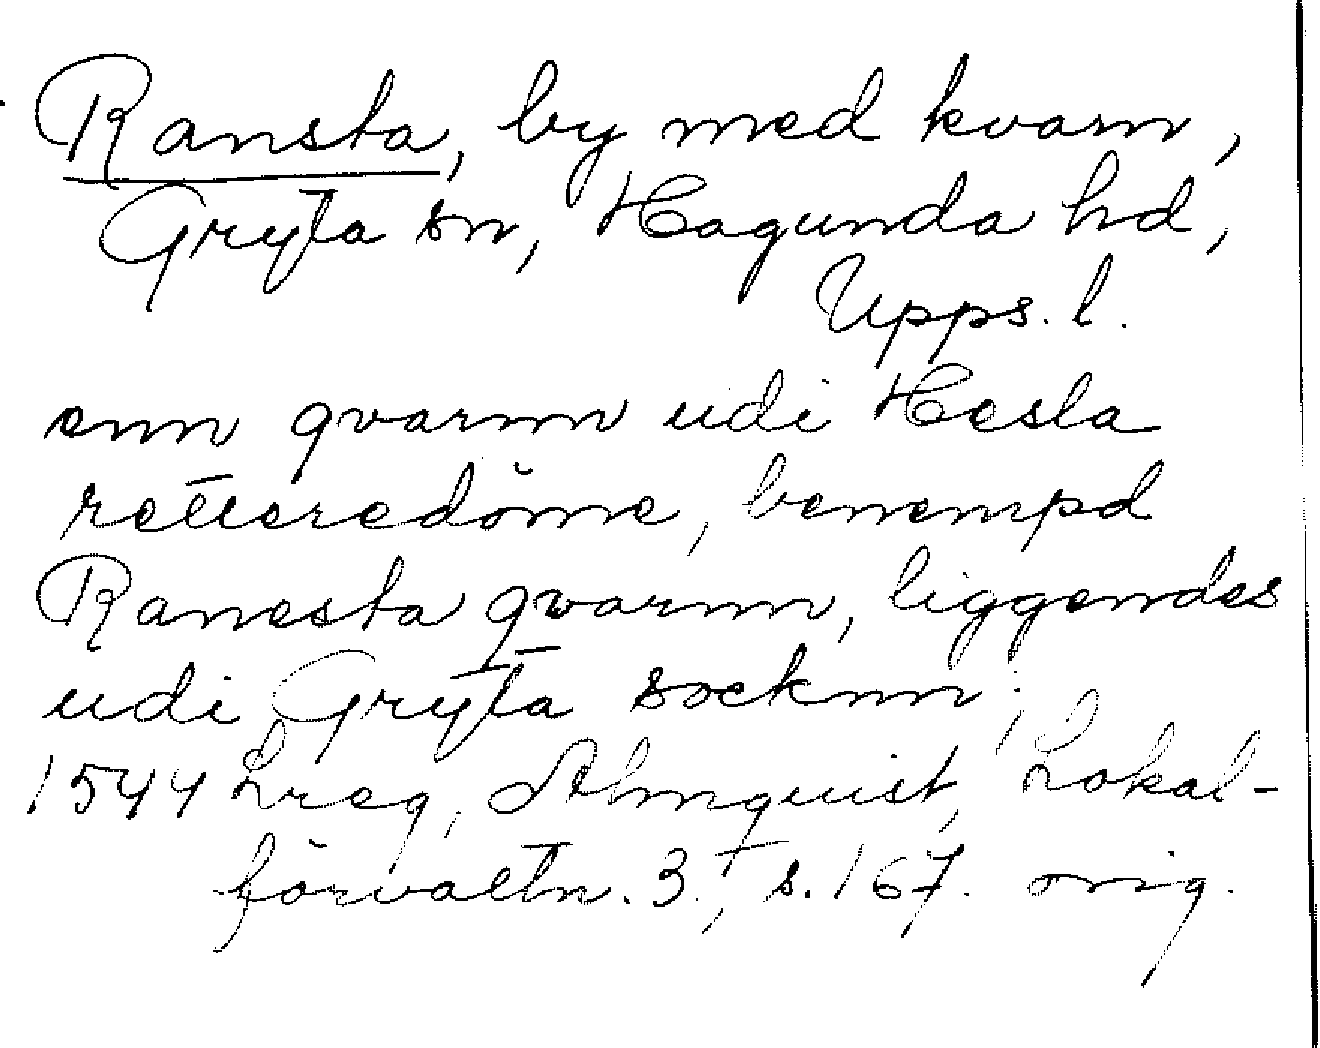 Ransta, by med kvarn,
Gryta sn, Hagunda hd,
Upps. l.
enn qvarnn udi Hesla
retteredöme, benempd
Ranesta qvarnn, liggendes
udi Gryta socknn;
1544 Lreg, Almquist, Lokal-
förvaltn. 3., s. 167. orig.